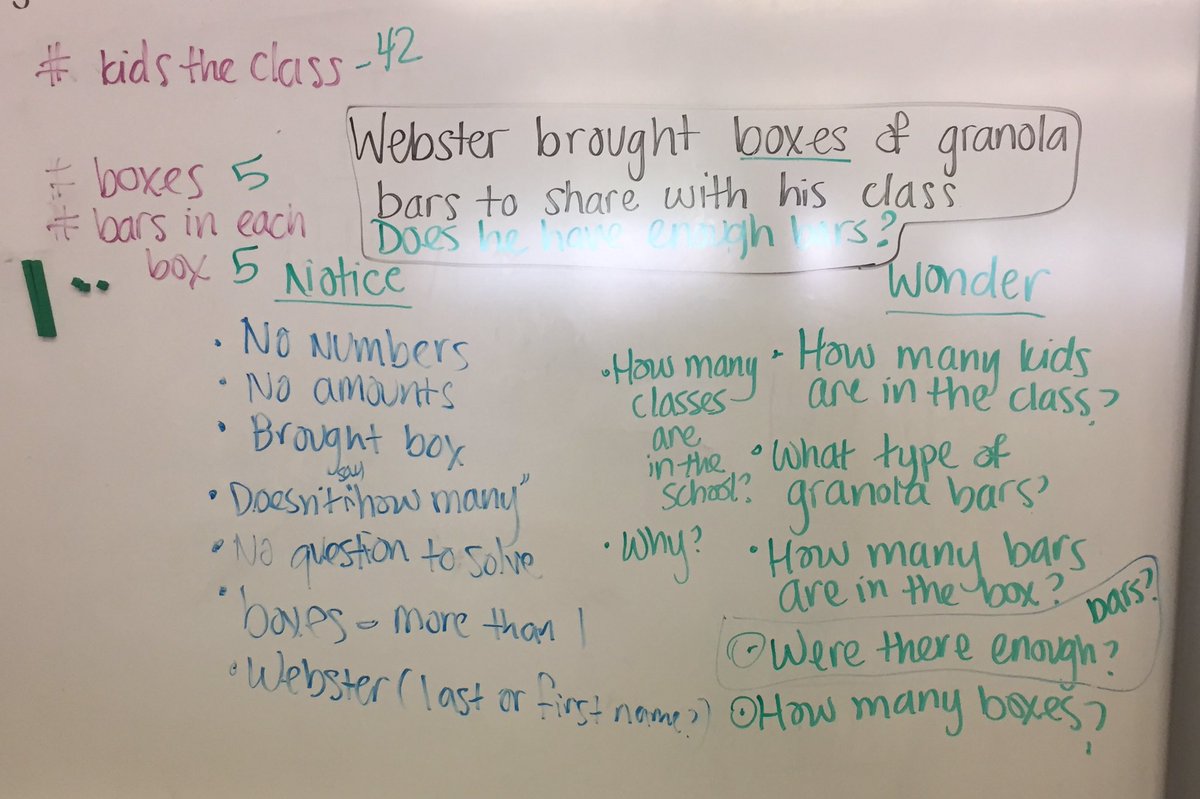 # kids the class - 42
Webster brought boxes of granola
bars to share with his class
Does he have enough bars?
# boxes 5
# bars in each
box 5
Notice
• No numbers
• No amounts
• Brought box
say
• Doesn't "how many"
• No question to solve
• boxes = more than 1
• Webster (last or first name?)
Wonder
• How many
classes
are
in the
school?
• Why?
• How many kids
are in the class?
• What type of
granola bars?
• How many bars
are in the box?
bars?
• Were there enough?
• How many boxes?